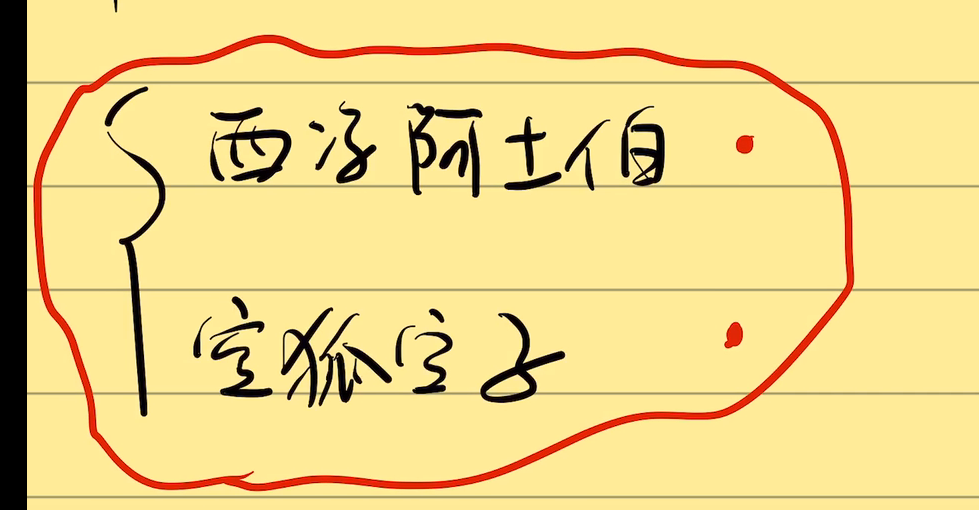 西浮阿土伯
空狐空子